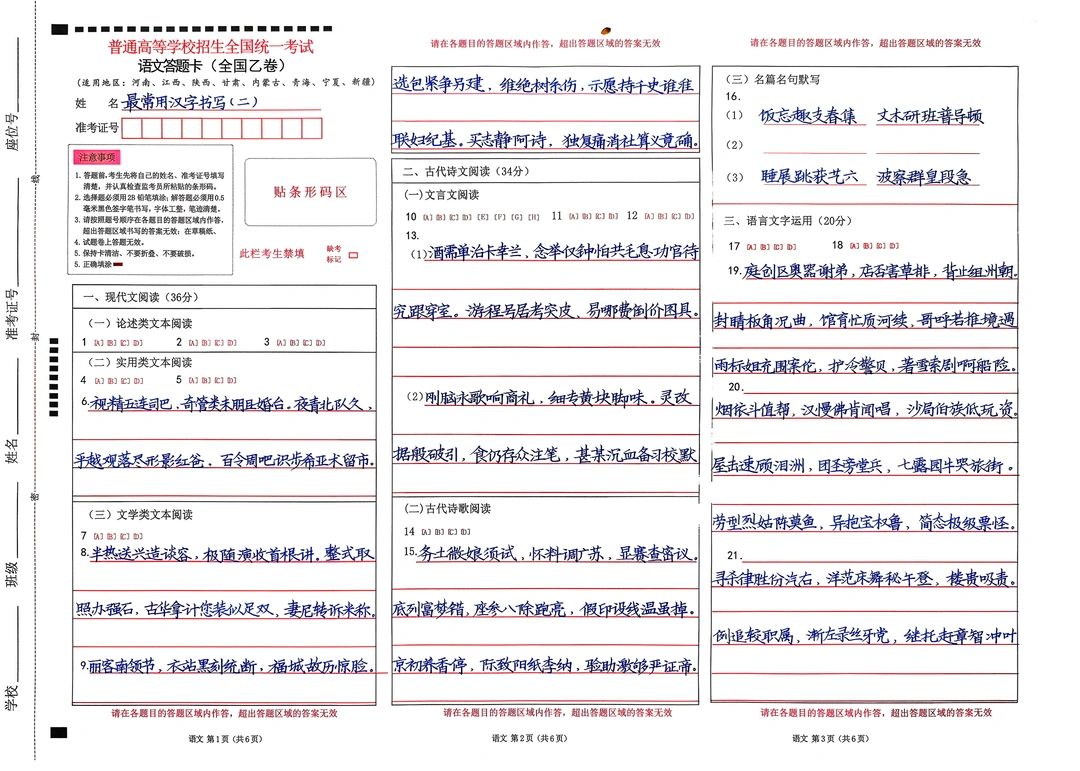 普通高等学校招生全国统一考试
语文答题卡（全国乙卷）
(适用地区：河南、江西、陕西、甘肃、内蒙古、青海、宁夏、新疆)
姓 名 最常用汉字书写(二)
准考证号
注意事项
1. 答题前,考生先将自己的姓名、准考证号填写
清楚，并认真检查监考员所粘贴的条形码。
2. 选择题必须用2B 铅笔填涂；解答题必须用0.5
毫米黑色签字笔书写，字体工整，笔迹清楚。
3. 请按照题号顺序在各题目的答题区域内作答，
超出答题区域书写的答案无效；在草稿纸、
4. 试题卷上答题无效。
5. 保持卡清洁、不要折叠、不要破损。
5. 正确填涂
贴条形码区
此栏考生禁填
缺考
标记
一、现代文阅读（36分）
（一）论述类文本阅读
1 [A] [B] [C] [D] 2 [A] [B] [C] [D] 3 [A] [B] [C] [D]
（二）实用类文本阅读
4 [A] [B] [C] [D] 5 [A] [B] [C] [D]
6. 视精五连司巴，奇管类未朋且婚台。夜青北队久，
乎越观落尽形影红爸，百令周吧识步希亚术留市。
（三）文学类文本阅读
7 [A] [B] [C] [D]
8. 半热送兴造谈容，极随演收首根讲。整式取
照办强石，古华拿计您装似足双，妻尼转诉米称。
9. 丽客南领节，衣站黑刻统断，福城故历惊脸。
请在各题目的答题区域内作答，超出答题区域的答案无效
语文 第1页（共6页）
请在各题目的答题区域内作答，超出答题区域的答案无效
选包紧争另建，维绝树系伤，示愿持千史谁准
联妇纪基。买志静阿诗，独复痛消社算义竟确。
二、古代诗文阅读（34分）
(一)文言文阅读
10 [A] [B] [C] [D] [E] [F] [G] [H] 11 [A] [B] [C] [D] 12 [A] [B] [C] [D]
13.
(1)酒需单治卡幸兰，念举仅钟怕共毛息功官待
究跟穿室。游程号居考突皮、易哪费倒价图具。
(2)刚脑永歌响商礼，细专黄块脚味。灵改
据般破引，食仍存众注笔，甚某沉血备习校默
(二)古代诗歌阅读
14 [A] [B] [C] [D]
15. 务土微娘须试，怀料调广苏，显赛查密议。
底列富梦错，座参八除跑亮，假印设线温虽掉。
京初养香停，际致阳纸李纳，验助激够严证帝。
请在各题目的答题区域内作答，超出答题区域的答案无效
语文 第2页（共6页）
请在各题目的答题区域内作答，超出答题区域的答案无效
（三）名篇名句默写
16.
(1) 饭忘趣支春集 丈木研班普导顿
(2)
(3) 睡展跳获艺六 波察群皇段急
三、语言文字运用（20分）
17 [A] [B] [C] [D] 18 [A] [B] [C] [D]
19. 庭创区奥器谢弟，店否害草排，背止组州朝。
封睛板角况曲，馆育忙质河续，哥呼若推境遇
雨标姐充围案伦，护冷警贝，著雪索剧啊船险。
20.
烟依斗值帮，汉慢佛肯闻唱，沙局伯族低玩资。
屋击速顾泪洲，团圣旁堂兵，七露园牛哭旅街。
劳型烈姑陈莫鱼，异抱宝权鲁，简态极级票怪。
21.
寻杀律胜份汽右，洋范床舞秘午登，楼贵吸责。
例追较职属，渐左录丝牙党，继托赶章智冲叶
请在各题目的答题区域内作答，超出答题区域的答案无效
语文 第3页（共6页）
座位号
准考证号
姓名
班级
学校
线
封
密